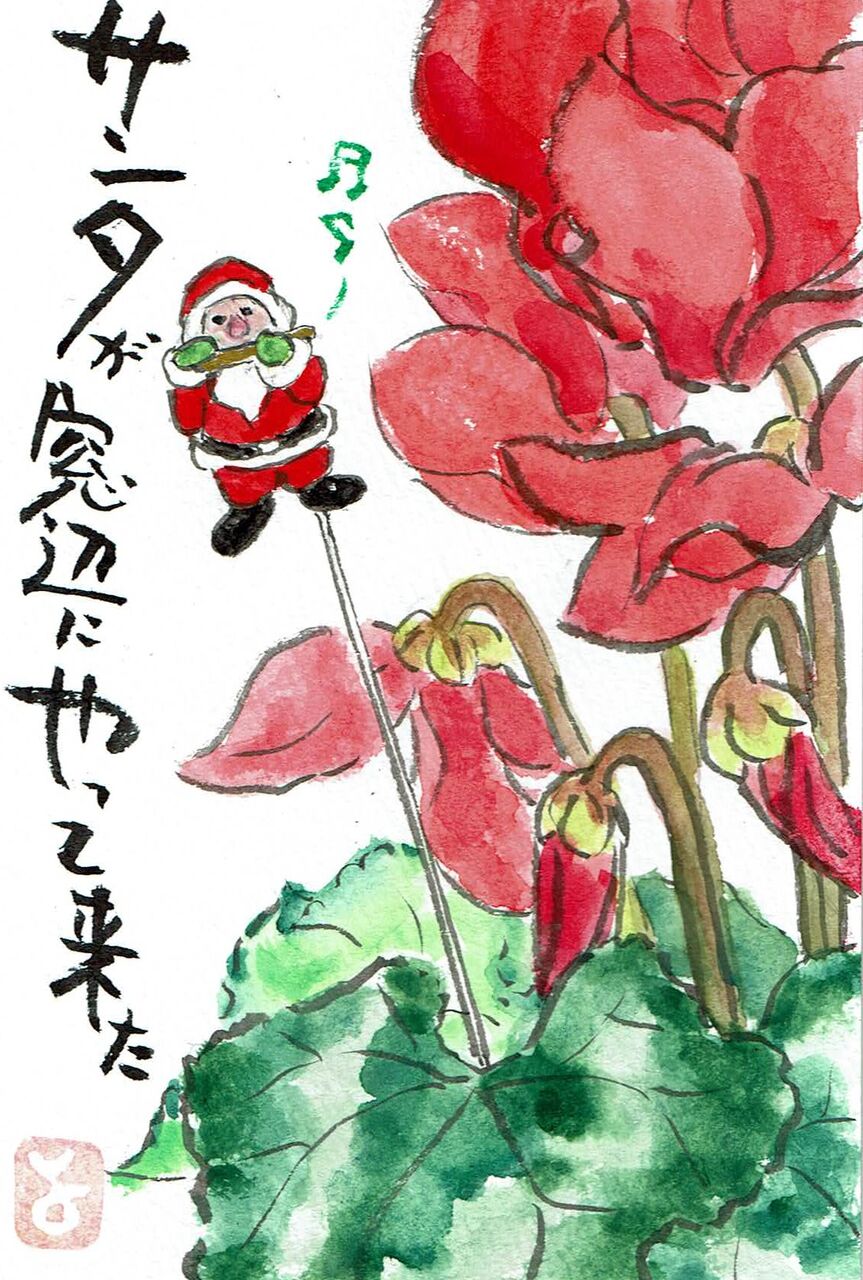 サンタが窓辺にやって来た